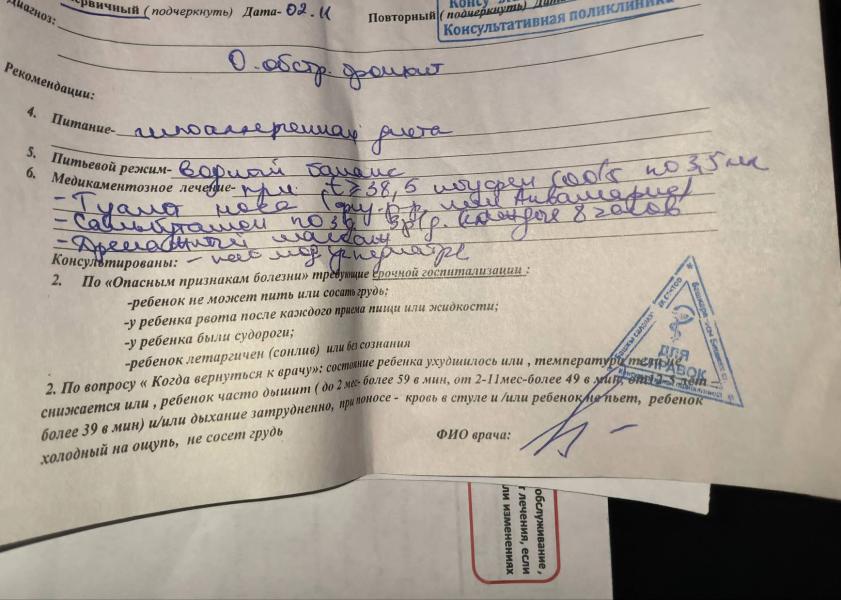 Первичный ( подчеркнуть) Дата- 02.11
Повторный ( подчеркнуть) Дата
Консультативная поликлиника
Диагноз:
О. обстр. бронхит
Рекомендации:
4. Питание- гипоаллергенная диета
5. Питьевой режим- водный баланс
6. Медикаментозное лечение- при t ≥ 38,5 ибуфен 100/5 по 3,5 мл
- Туалет носа (физ. р-р или Аквамарис)
- Сальбутамол по 3р/д. каждые 8 часов
- Дренажный массаж
Консультированы: -
2. По «Опасным признакам болезни» требующие срочной госпитализации :
-ребенок не может пить или сосать грудь;
-у ребенка рвота после каждого приема пищи или жидкости;
-у ребенка были судороги;
-ребенок летаргичен (сонлив) или без сознания
ДЛЯ
СПРАВОК
2. По вопросу « Когда вернуться к врачу»: состояние ребенка ухудшилось или , температура тела не
снижается или , ребенок часто дышит ( до 2 мес- более 59 в мин, от 2-11мес-более 49 в мин, от 12-5 лет –
более 39 в мин) и/или дыхание затрудненно, при поносе - кровь в стуле и /или ребенок не пьет, ребенок
холодный на ощупь, не сосет грудь
ФИО врача:
обслуживание ,
лечения, если
ли изменениях